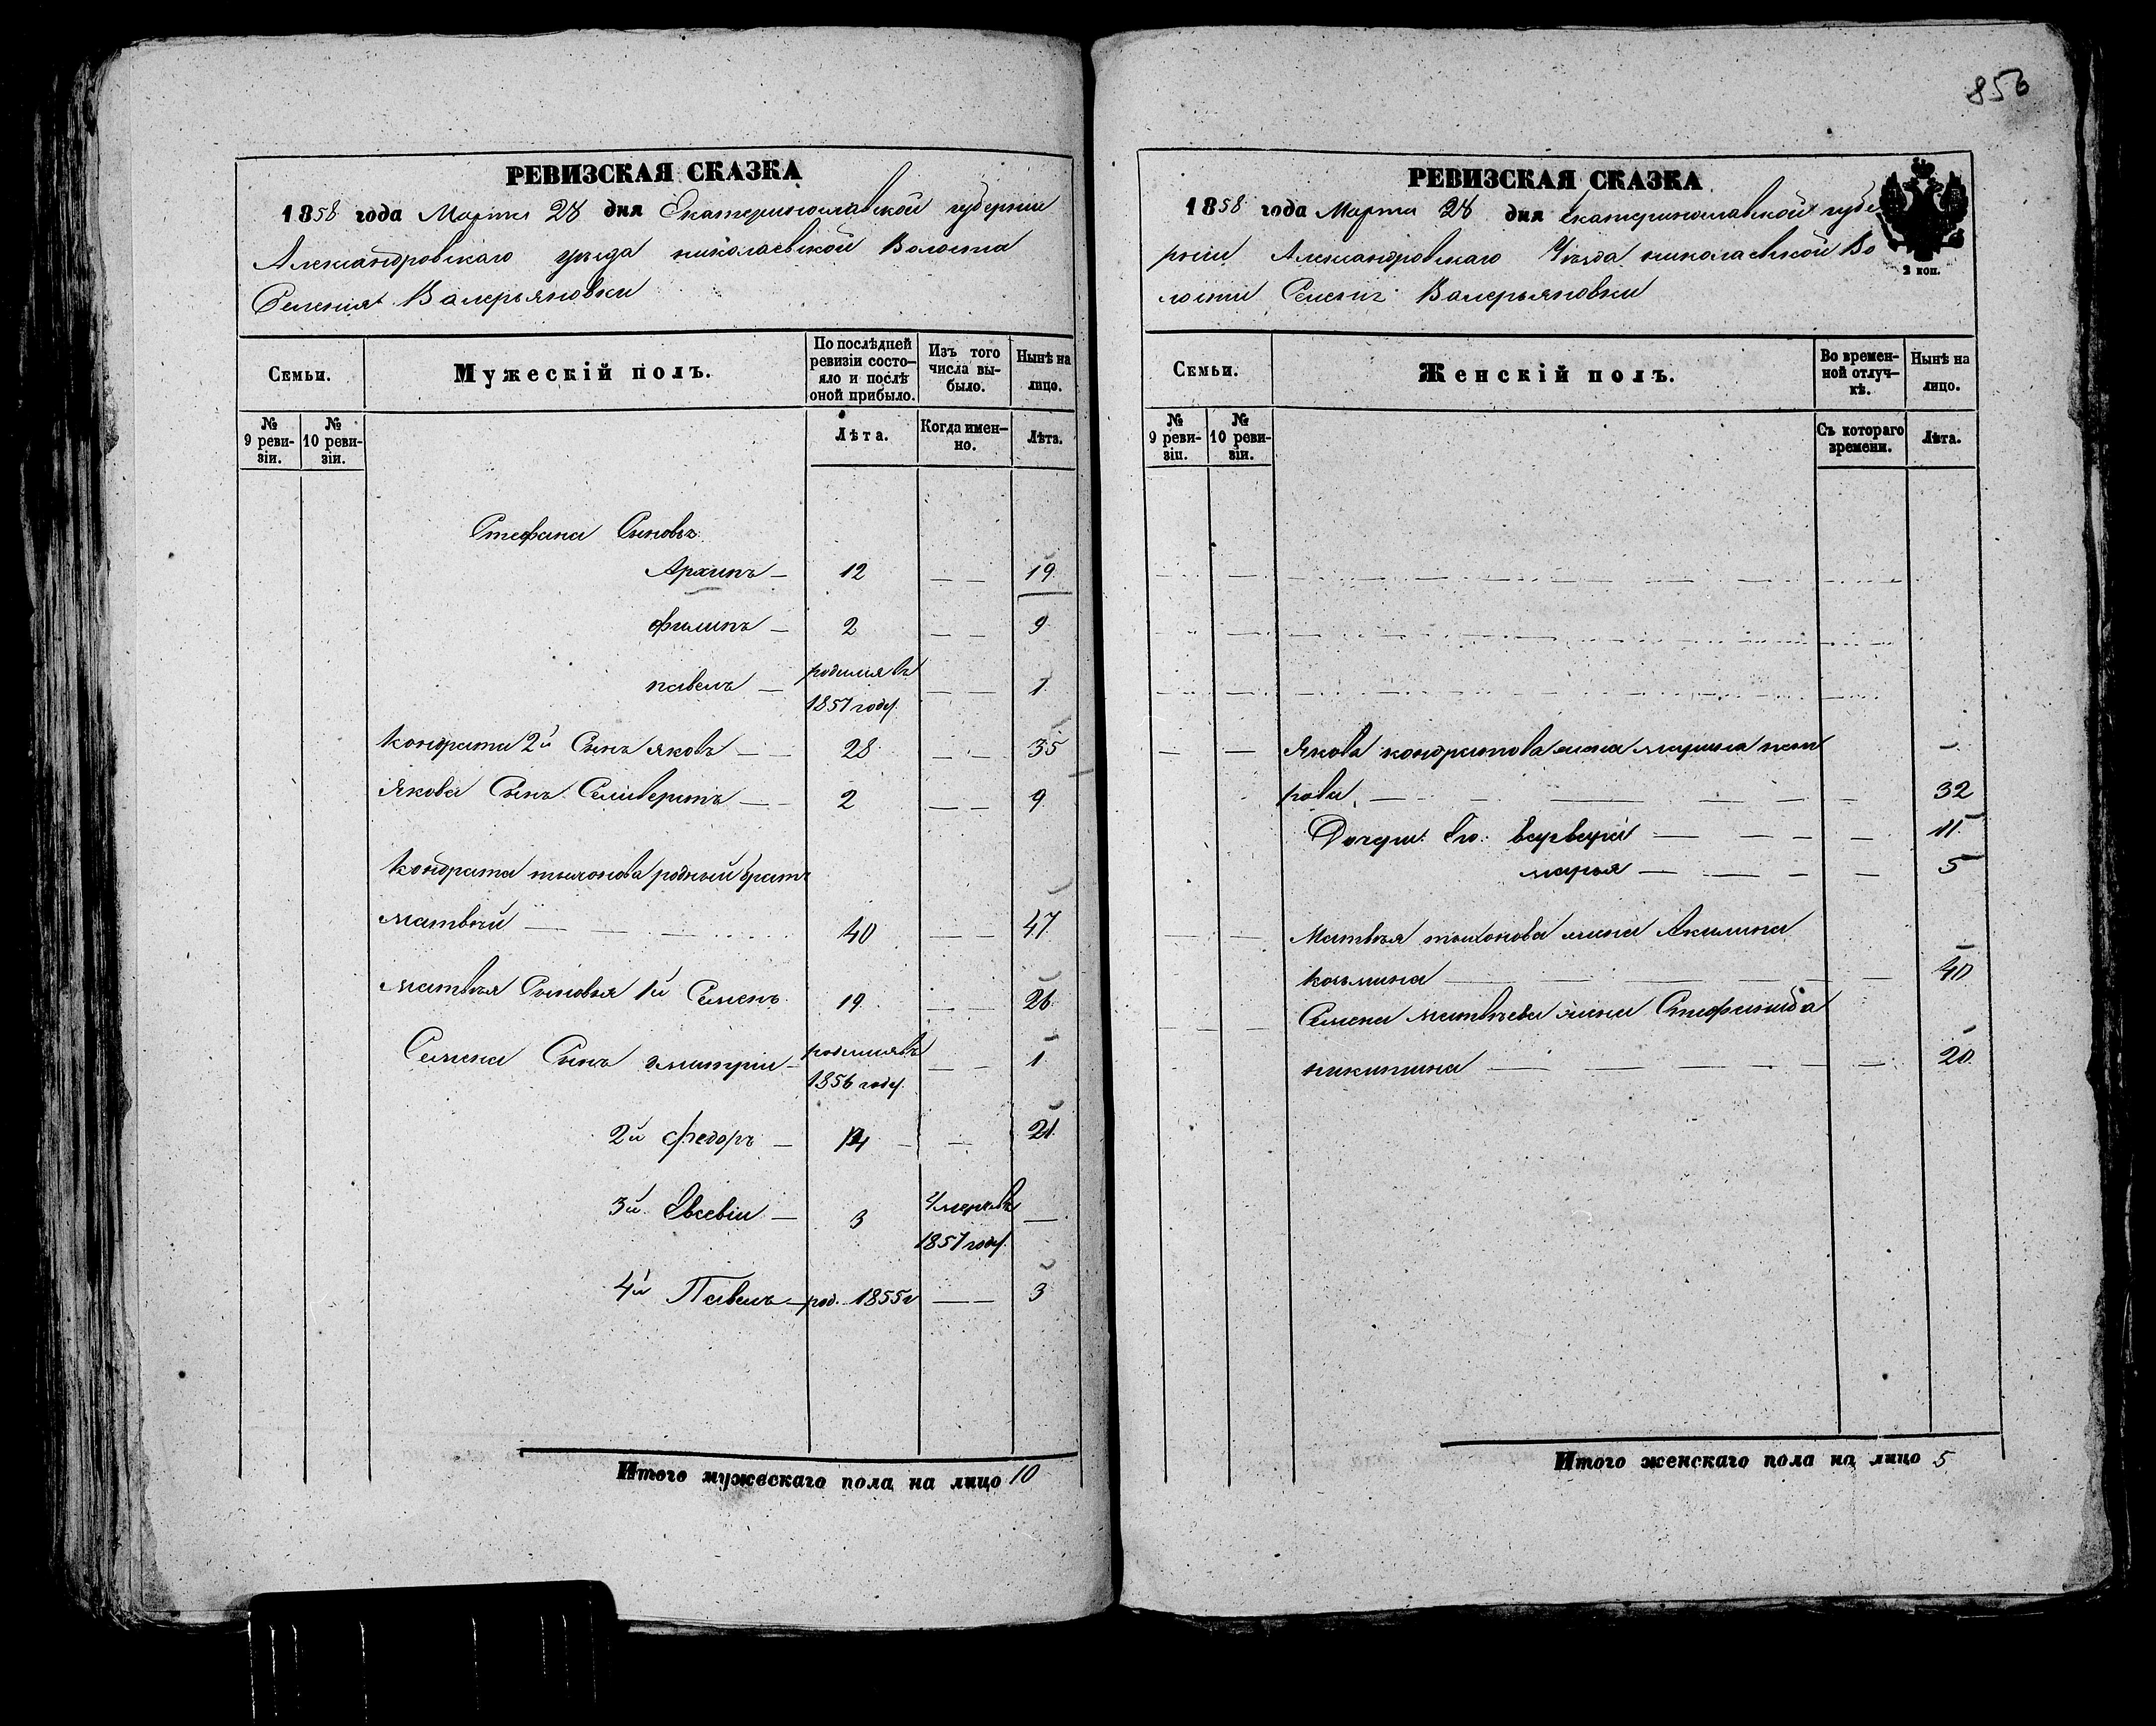 856
РЕВИЗСКАЯ СКАЗКА
1858 года Марта 28 дня Екатеринославской губернии
Александровскаго уезда николаевской Волости
Селения Валерьяновки
Семьи.
Мужескій полъ.
По послѣдней ревизіи состо-яло и послѣ оной прибыло.
Изъ того числа вы-было.
Нынѣ на лицо.
№ 9 реви-зіи.
№ 10 реви-зіи.
Лѣта.
Когда имен-но.
Лѣта.
Стефана Сыновья
Архипъ — 12 — — 19
филипъ — 2 — — 9
павелъ — родился въ 1857 году. — — 1
Кондрата 2й Сынъ яковъ — — 28 — — 35
Якова Сынъ Селиверстъ — — 2 — — 9
Кондрата тихонова родный братъ
матвѣй — — 40 — — 47
матвѣя Сыновья 1й Семенъ 19 — — 26
Семена Сынъ дмитрии — родился въ 1856 году. — — 1
2й федоръ — 14 — — 21
3й Евсевіи — 3 Умеръ въ 1857 году. —
4й Павелъ — род. 1855 г — — 3
Итого мужескаго пола на лицо 10
РЕВИЗСКАЯ СКАЗКА
1858 года Марта 28 дня Екатеринославской губе
рніи Александровскаго Уѣзда николаевской Во
лости Селения Валерьяновки
2 коп.
Семьи.
Женскій полъ.
Во времен-ной отлуч-кѣ.
Нынѣ на лицо.
№ 9 реви-зіи.
№ 10 реви-зіи.
Съ котораго времени.
Лѣта.
Якова кондратова жена марина пет
рова — 32
Дочери Его: варвара — — — 11
марья — — — 5
Матвѣя тихонова жена Акилина
козьмина — 40
Семена матвѣева жена Стефанида
никитина — 20
Итого женскаго пола на лицо 5